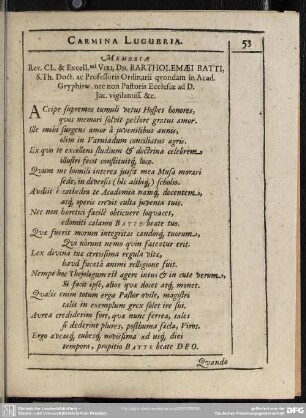 CARMINA LUGUBRIA. 53
MEMORIÆ
Rev. CL. & Excell.mi VIRI, DN. BARTHOLEMÆI BATTI,
S. Th. Doct. ac Professoris Ordinarii qvondam in Acad.
Gryphisw. nec non Pastoris Ecclesiæ ad D.
Jac. vigilantiss. &c.
ACcipe supremos tumuli vetus Hospes honores,
qvos memori solvit pectore gratus amor.
Ille mihi surgens amor à juvenilibus annis,
olim in Varniadum conciliatus agris.
Ex quo te excellens studium & doctrina celebrem
illustri fecit constituitq; loco.
Qvum me humili interea jussit mea Musa morari
sede, in diversis (hîc alibiq;) scholis.
Audiit è cathedra te Academia nanq; docentem,
atq; operis crevit culta juventa tuis.
Nec non hæretici facilè obticuere loqvaces,
edomiti calamo BATTE beate tuo.
Qvæ fuerit morum integritas candorq; tuorum,
Qvi nôrunt nemo qvin fateatur erit.
Lex divina tuæ certissima regula vitæ,
haud fucatâ animi relligione fuit.
Nempe hoc Theologum est agere intus & in cute verum,
Si facit ipse, alios qvæ docet atq; monet.
Qvalis enim totum erga Pastor ovile, magistri
talis in exemplum grex solet ire sui.
Aurea crediderim fore, qvæ nunc ferrea, secla
si dederint plures, posthuma secla, Viros.
Ergo avæaq;
tempora, propitio BATTE beate DEO.
Qvando